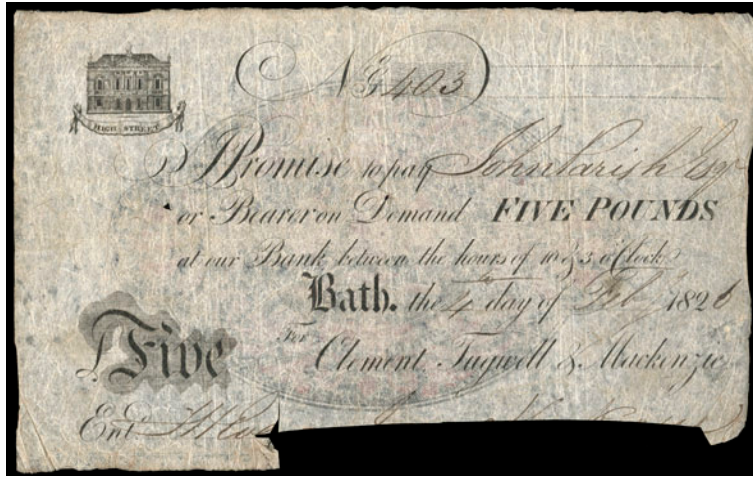 No G403
HIGH STREET
I Promise to pay John Parish Esqr
or Bearer on Demand FIVE POUNDS
at our Bank between the hours of 10 & 3 o'Clock
Bath. the 4th day of Feby 1826
For Clement, Tugwell & Mackenzie
£Five
Entd